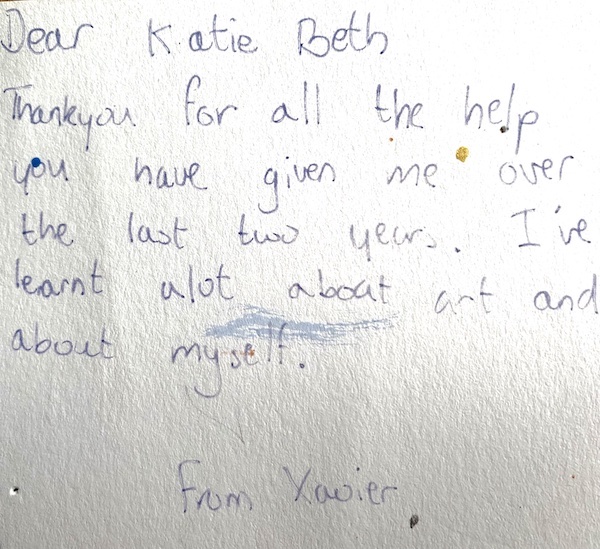 Dear Katie Beth
Thankyou for all the help
you have given me over
the last two years. I've
learnt alot about art and
about myself.
From Xavier